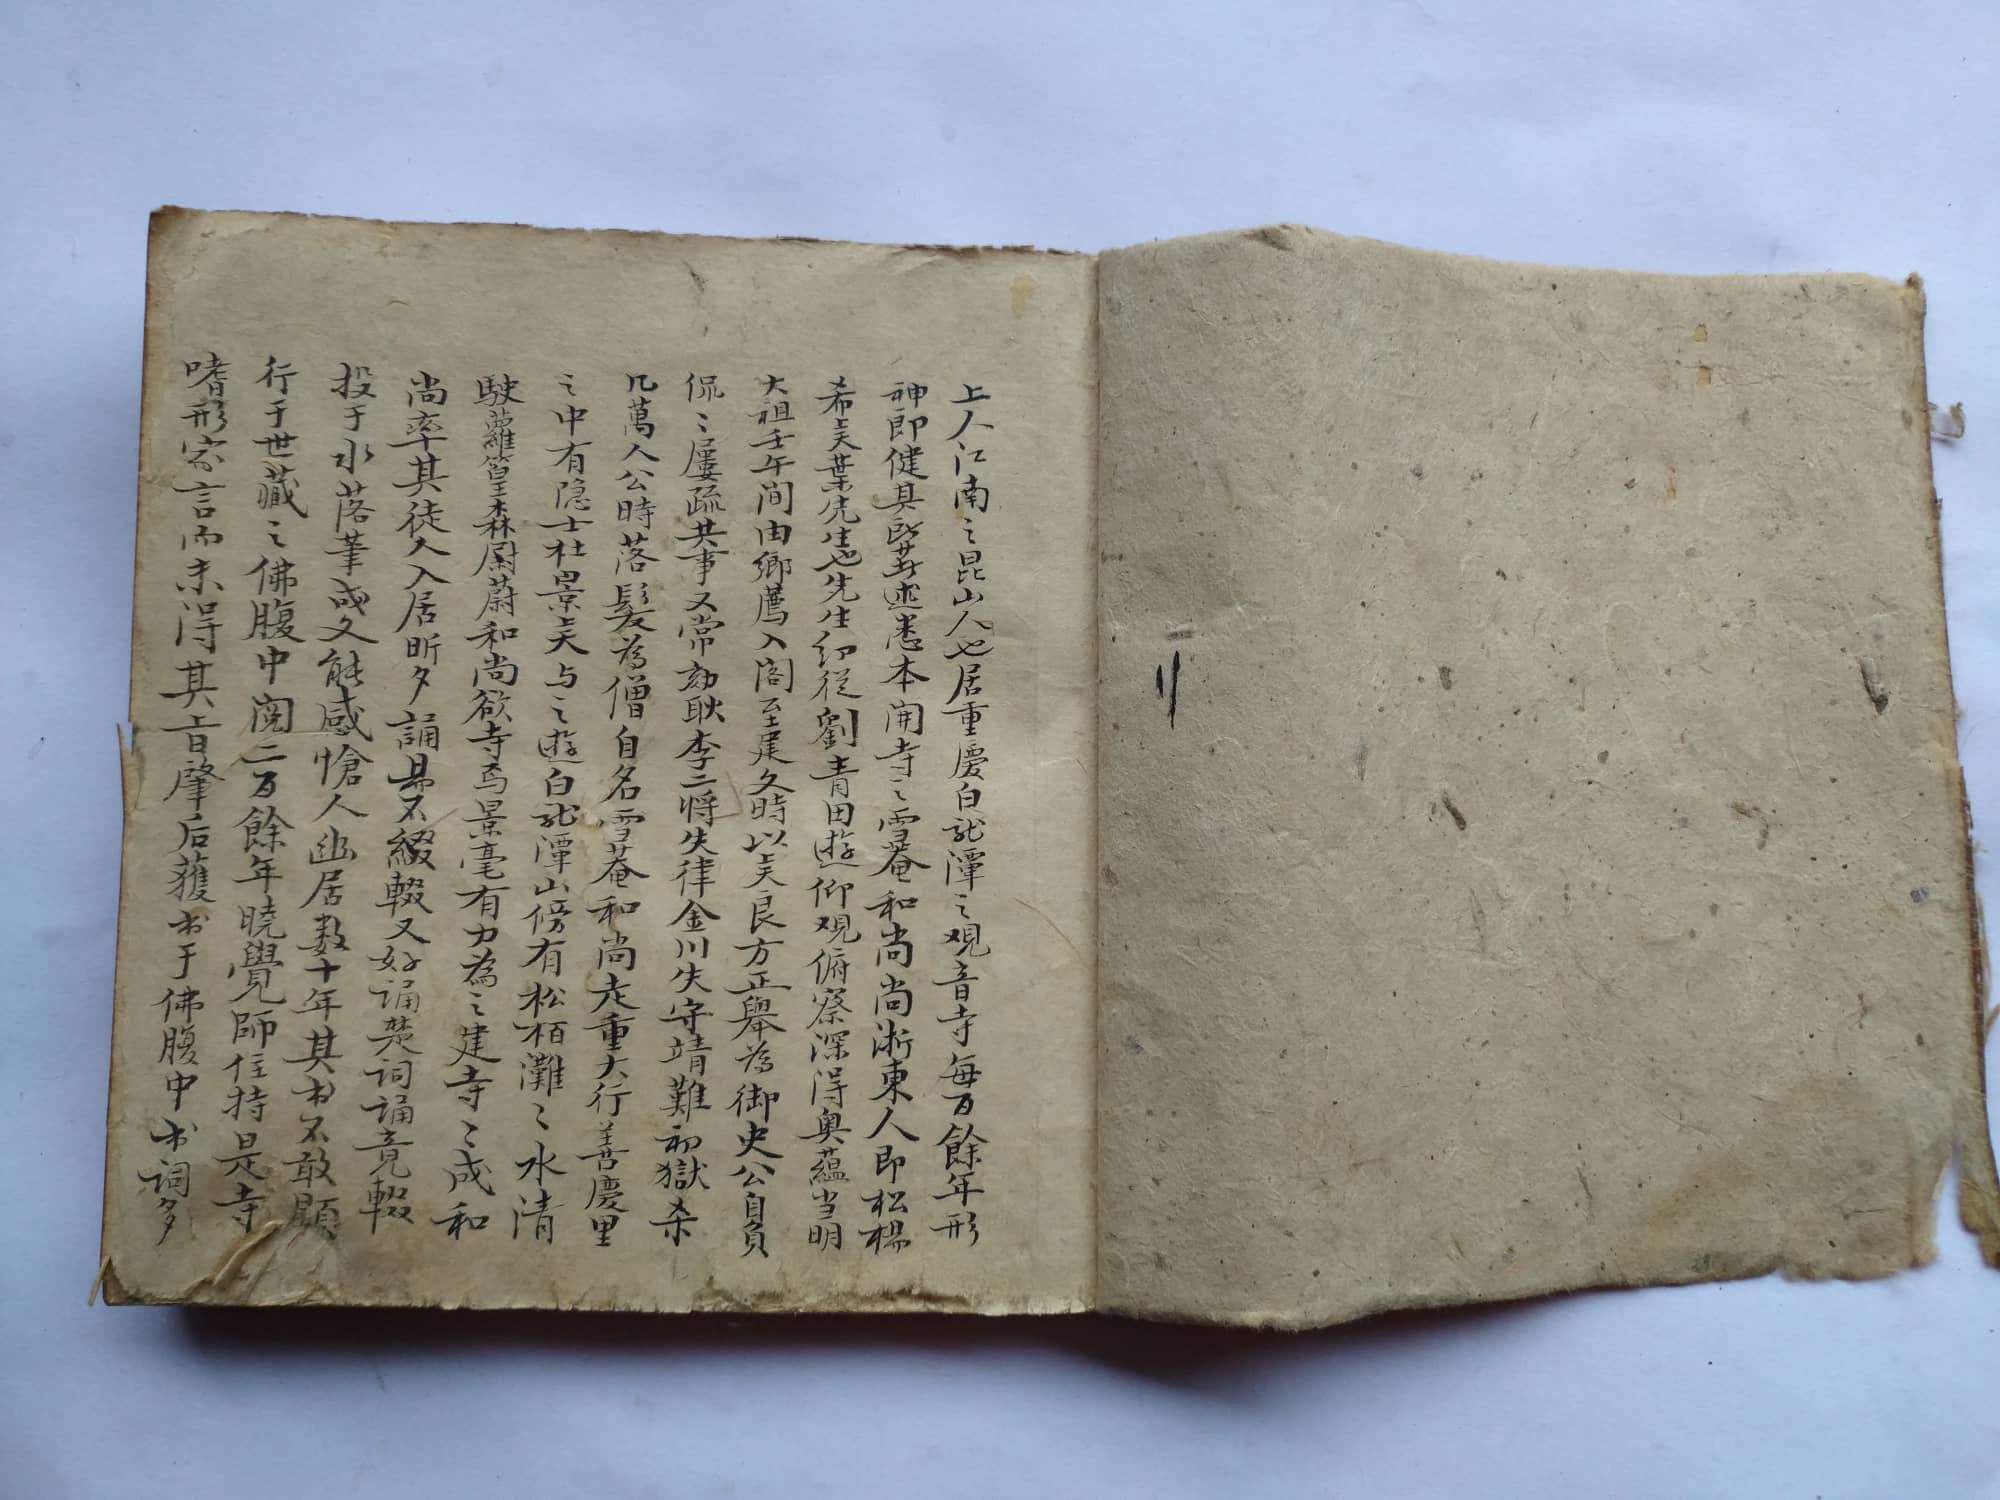 上人江南之昆山人也居重慶白龍潭之观音寺每百餘年形
神即健其所著述悉本開寺之雪菴和尚尚浙東人即松楊
希賢葉先生也先生幼從劉青田遊仰观俯察深得奥蘊当明
大祖壬午间由鄉薦入阁至建文時以賢良方正舉為御史公自負
侃〻屢疏其事又常劾耿李二将失律金川失守靖難初獄杀
几萬人公時落髮為僧自名雪菴和尚走重大行善慶里
之中有隐士杜景賢与之遊白龍潭山傍有松栢灘〻水清
駛蘿篁森蔚和尚欲寺焉景毫有力為之建寺〻成和
尚率其徒入居昕夕誦易不綴輟又好诵楚词誦竟輟
投于水落筆成文能感愴人幽居数十年其书不敢顕
行于世藏之佛腹中阅二百餘年曉覺師住持是寺
嗜形家言而未得其旨肇后獲书于佛腹中书词多